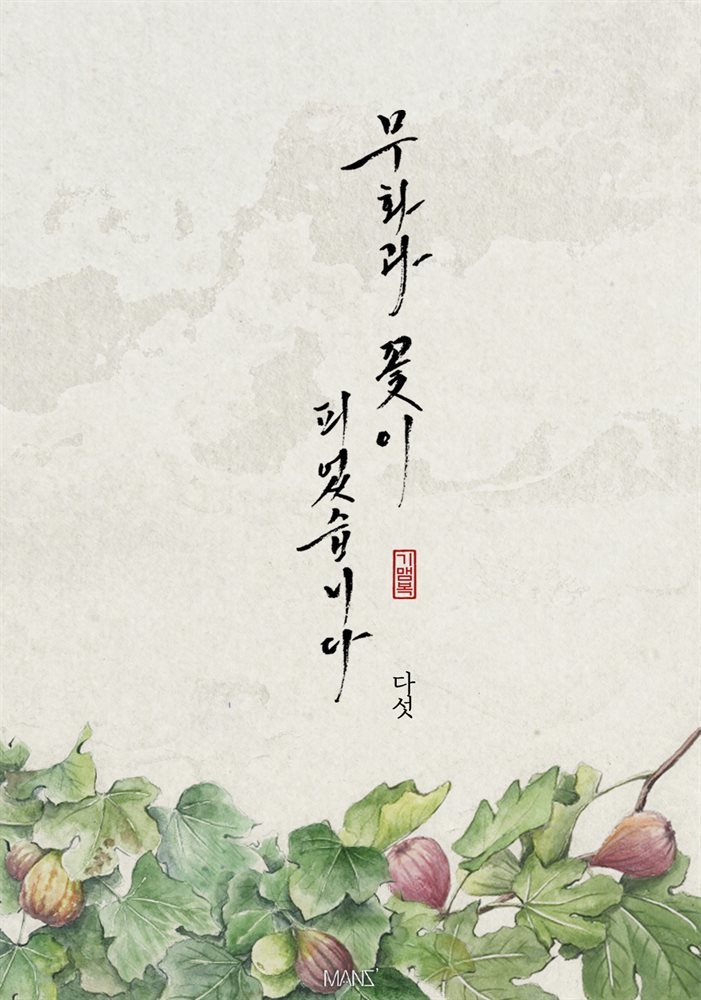 무화과 꽃이
피었습니다
기맴복
다섯
MANZ'